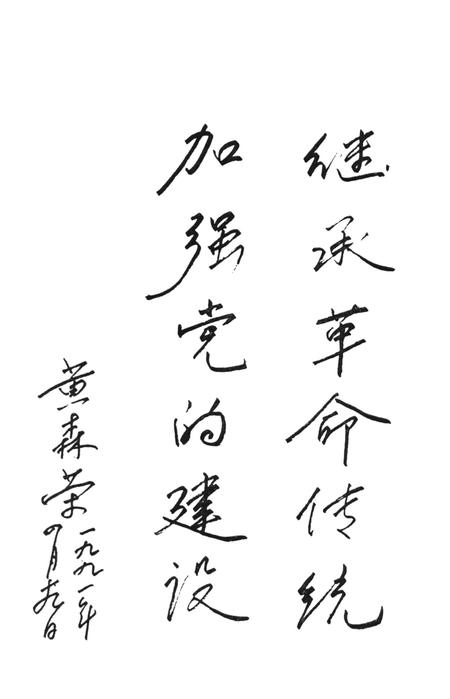 继承革命传统
加强党的建设
黄森荣
一九九一年
四月十九日